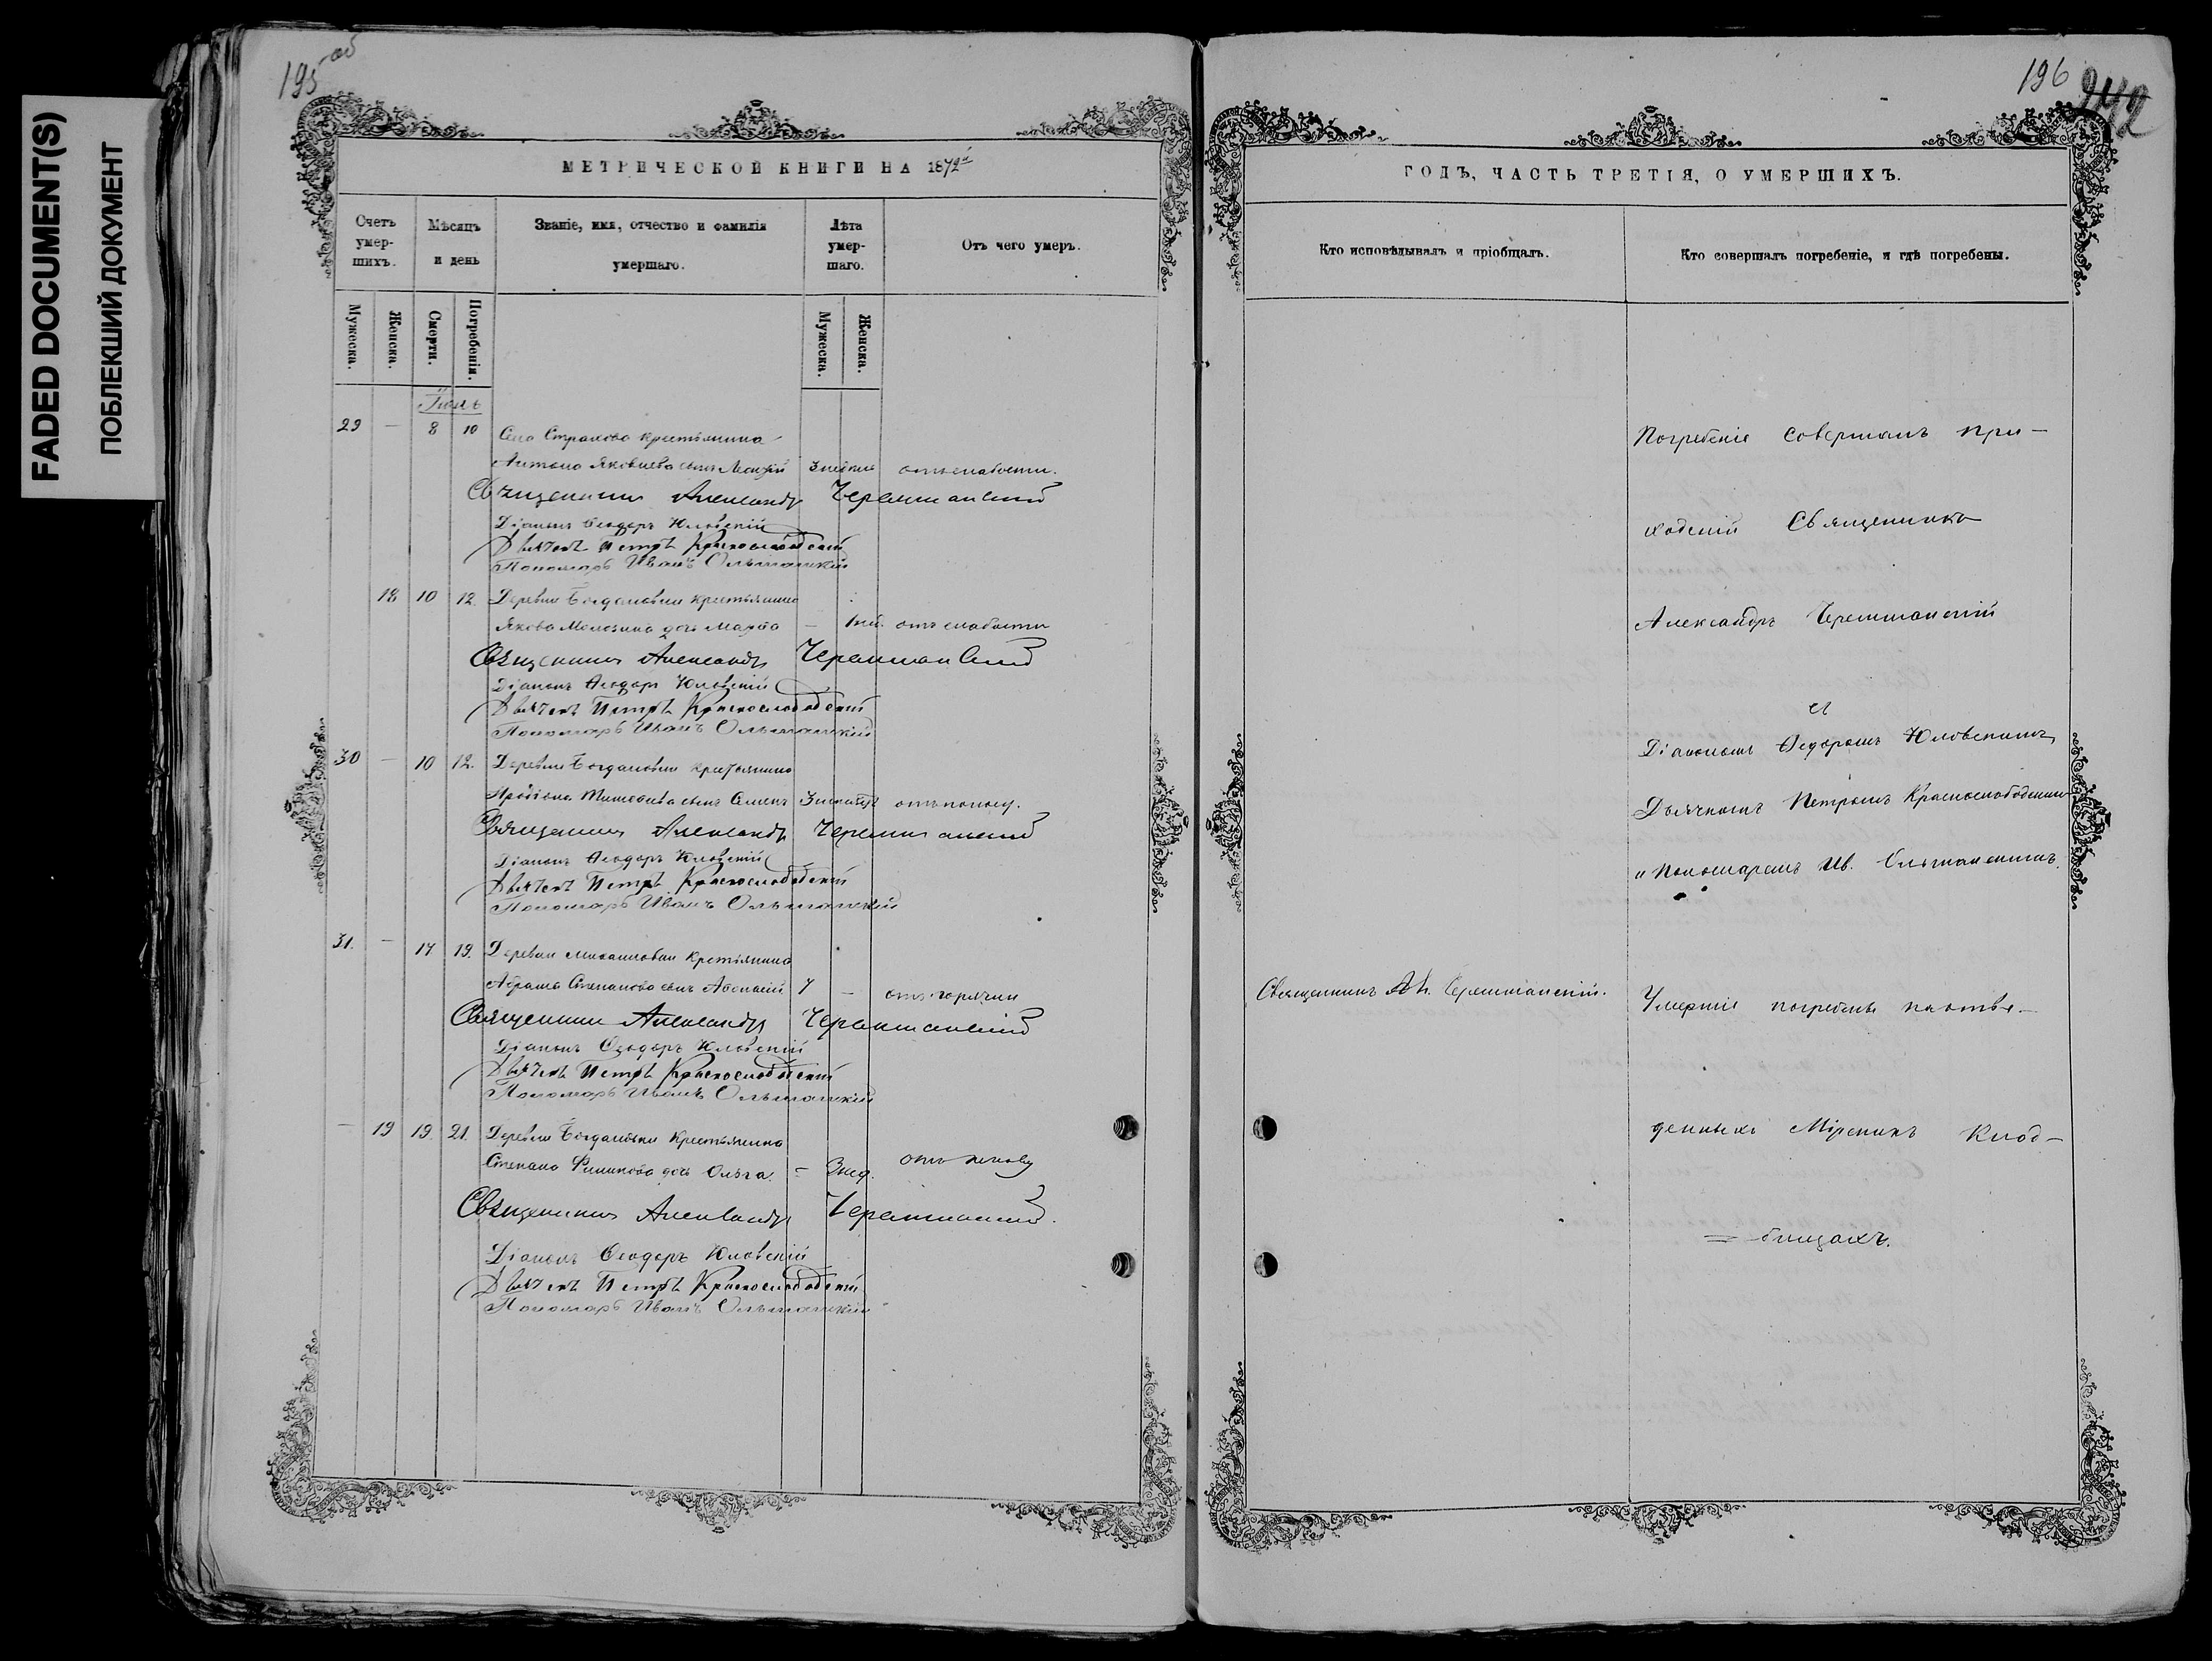 FADED DOCUMENT(S)
ПОБЛЕКШИЙ ДОКУМЕНТ
195 об
МЕТРИЧЕСКОЙ КНИГИ НА 1872й
Счетъ умер-шихъ.
Мѣсяцъ и день
Званіе, имя, отчество и фамилія умершаго.
Лѣта умер-шаго.
Отъ чего умеръ.
Мужеска.
Женска.
Смерти.
Погребенія.
Мужеска.
Женска.
29 — 8 10 Село Страхово крестьянина
Антона Яковлева сынъ отъ слабости.
Священникъ Александръ Черемшанскій
Діаконъ Ѳеодоръ Юловскій
Дьячекъ Петръ Краснослободскій
Пономарь Иванъ Ольшанскій
18 10 12. Деревни Богдановки крестьянина
Якова дочь Марѳа — 1 нед. отъ слабости
Священникъ Александръ Черемшанскій
Діаконъ Ѳеодоръ Юловскій
Дьячекъ Петръ Краснослободскій
Пономарь Иванъ Ольшанскій
30 — 10 12. Деревни Богдановки крестьянина
сынъ Семенъ отъ поносу.
Священникъ Александръ Черемшанскій
Діаконъ Ѳеодоръ Юловскій
Дьячекъ Петръ Краснослободскій
Пономарь Иванъ Ольшанскій
31. — 17 19. Деревни Михайловки крестьянина
Абрама Степанова сынъ Аѳонасій 7 — отъ горячки
Священникъ Александръ Черемшанскій
Діаконъ Ѳеодоръ Юловскій
Дьячекъ Петръ Краснослободскій
Пономарь Иванъ Ольшанскій
— 19 19. 21. Деревни Богдановки крестьянина
Степана Филипова дочь Ольга. — 3 нед. отъ поносу
Священникъ Александръ Черемшанскій.
Діаконъ Ѳеодоръ Юловскій
Дьячекъ Петръ Краснослободскій
Пономарь Иванъ Ольшанскій
196
242
ГОДЪ, ЧАСТЬ ТРЕТІЯ, О УМЕРШИХЪ.
Кто исповѣдывалъ и пріобщалъ.
Кто совершалъ погребеніе, и гдѣ погребены.
Погребеніе совершалъ при-
ходскій Священникъ
Александръ Черемшанскій
съ
Діакономъ Ѳедоромъ Юловскимъ
Дьячкомъ Петромъ Краснослободскимъ
и Пономаремъ Ив. Ольшанскимъ.
Священникъ Ал. Черемшанскій.
Умершіе погребены на отве-
денныхъ Мірскихъ Клад-
=бищахъ.